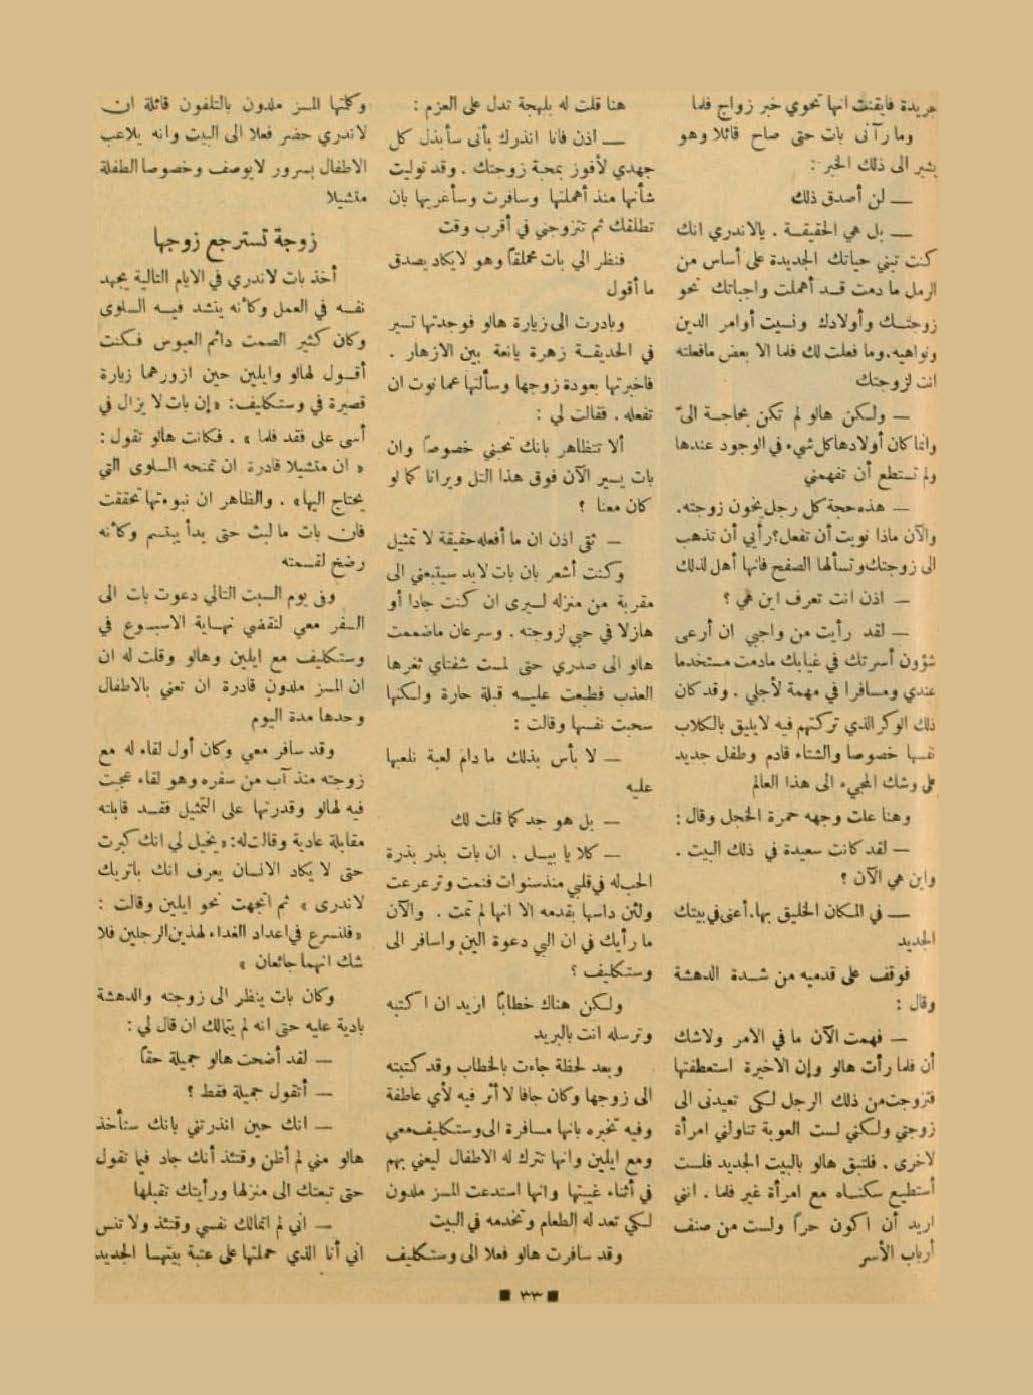 جريدة فايقنت انها تحوي خبر زواج فلما
وما رآنى بات حتى صاح قائلا وهو
يشير الى ذلك الخبر :
— لن أصدق ذلك
— بل هي الحقيقة . يالاندري انك
كنت تبني حياتك الجديدة على أساس من
الرمل ما دمت قد أهملت واجباتك نحو
زوجتك وأولادك ونسيت أوامر الدين
ونواهيه.وما فعلت لك فلما الا بعض مافعلته
انت لزوجتك
— ولكن هالو لم تكن بحاجة الىّ
وانما كان أولادها كل شيء في الوجود عندها
ولم تستطع أن تفهمني
— هذه حجة كل رجل يخون زوجته.
والآن ماذا نويت أن تفعل؟رأيي أن تذهب
الى زوجتك وتسألها الصفح فانها أهل لذلك
— اذن انت تعرف اين هي ؟
— لقد رأيت من واجبي ان أرعى
شؤون أسرتك في غيابك مادمت مستخدما
عندي ومسافرا في مهمة لأجلي . وقد كان
ذلك الوكر الذي تركتهم فيه لايليق بالكلاب
نفسها خصوصا والشتاء قادم وطفل جديد
على وشك المجيء الى هذا العالم
وهنا علت وجهه حمرة الخجل وقال :
— لقد كانت سعيدة في ذلك البيت .
واين هي الآن ؟
— في المكان الخليق بها.أعنى في بيتك
الجديد
فوقف على قدميه من شدة الدهشة
وقال :
— فهمت الآن ما في الامر ولاشك
أن فلما رأت هالو وإن الاخيرة استعطفتها
فتزوجت من ذلك الرجل لكى تعيدنى الى
زوجتي ولكني لست العوبة تناولني امرأة
لاخرى . فلتبق هالو بالبيت الجديد فلست
أستطيع سكناه مع امرأة غير فلما . انني
اريد أن اكون حراً ولست من صنف
أرباب الأسر
هنا قلت له بلهجة تدل على العزم :
— اذن فانا انذرك بأنى سأبذل كل
جهدي لأفوز بمحبة زوجتك . وقد توليت
شأنها منذ أهملتها وسافرت وسأغريها بان
تطلقك ثم تتزوجني في أقرب وقت
فنظر الي بات محملقاً وهو لايكاد يصدق
ما أقول
وبادرت الى زيارة هالو فوجدتها تسير
في الحديقة زهرة يانعة بين الازهار .
فاخبرتها بعودة زوجها وسألتها عما نوت ان
تفعله . فقالت لي :
ألا تتظاهر بانك تحبني خصوصاً وان
بات يسير الآن فوق هذا التل ويرانا كما لو
كان معنا ؟
— ثقى اذن ان ما أفعله حقيقة لا تمثيل
وكنت أشعر بان بات لابد سيتبعني الى
مقربة من منزله ليرى ان كنت جادا أو
هازلا في حبي لزوجته . وسرعان ماضممت
هالو الى صدري حتى لمست شفتاي ثغرها
العذب فطبعت عليه قبلة حارة ولكنها
سحبت نفسها وقالت :
— لا بأس بذلك ما دام لعبة نلعبها
عليه
— بل هو جد كما قلت لك
— كلا يا بيل . ان بات بذر بذرة
الحب له في قلبي منذ سنوات فنمت وترعرعت
ولئن داسها بقدمه الا انها لم تمت . والآن
ما رأيك في ان البي دعوة الين واسافر الى
وستكليف ؟
ولكن هناك خطابًا اريد ان اكتبه
وترسله انت بالبريد
وبعد لحظة جاءت بالخطاب وقد كتبته
الى زوجها وكان جافا لا أثر فيه لأي عاطفة
وفيه تخبره بانها مسافرة الى وستكليف معي
ومع ايلين وانها تترك له الاطفال ليعني بهم
في أثناء غيبتها وانها استدعت المسز ملدون
لكي تعد له الطعام وتخدمه في البيت
وقد سافرت هالو فعلا الى وستكليف
وكلتها المسز ملدون بالتلفون قائلة ان
لاندري حضر فعلا الى البيت وانه يلاعب
الاطفال بسرور لايوصف وخصوصا الطفلة
متشيلا
زوجة تسترجع زوجها
أخذ بات لاندري في الايام التالية يجهد
نفسه في العمل وكأنه ينشد فيه السلوى
وكان كثير الصمت دائم العبوس فكنت
أقول لهالو وايلين حين ازورهما زيارة
قصيرة في وستكليف: «إن بات لا يزال في
أسى على فقد فلما » . فكانت هالو تقول :
« ان متشيلا قادرة ان تمنحه السلوى التي
يحتاج اليها» . والظاهر ان نبوءتها تحققت
فان بات ما لبث حتى بدأ يبتسم وكأنه
رضخ لقسمته
وفى يوم السبت التالي دعوت بات الى
السفر معي لنقضي نهاية الاسبوع في
وستكليف مع ايلين وهالو وقلت له ان
ان المسز ملدون قادرة ان تعني بالاطفال
وحدها مدة اليوم
وقد سافر معي وكان أول لقاء له مع
زوجته منذ آب من سفره وهو لقاء عجبت
فيه لهالو وقدرتها على التمثيل فقد قابلته
مقابلة عادية وقالت له: «يخيل لي انك كبرت
حتى لا يكاد الانسان يعرف انك باتريك
لاندرى » ثم اتجهت نحو ايلين وقالت :
«فلنسرع في اعداد الغداء لهذين الرجلين فلا
شك انهما جائعان »
وكان بات ينظر الى زوجته والدهشة
بادية عليه حتى انه لم يتمالك ان قال لي :
— لقد أضحت هالو جميلة حقاً
— أتقول جميلة فقط ؟
— انك حين انذرتني بانك ستأخذ
هالو مني لم أظن وقتئذ أنك جاد فيما تقول
حتى تبعتك الى منزلها ورأيتك تقبلها
— اني لم اتمالك نفسي وقتئذ ولا تنس
اني أنا الذي حملتها على عتبة بيتها الجديد
■ ٣٣ ■